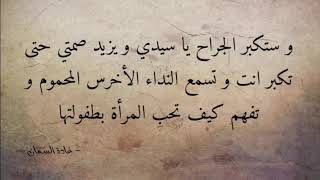 و ستكبر الجراح يا سيدي و يزيد صمتي حتى
تكبر انت و تسمع النداء الأخرس المحموم و
تفهم كيف تحب المرأة بطفولتها
- غادة السمان